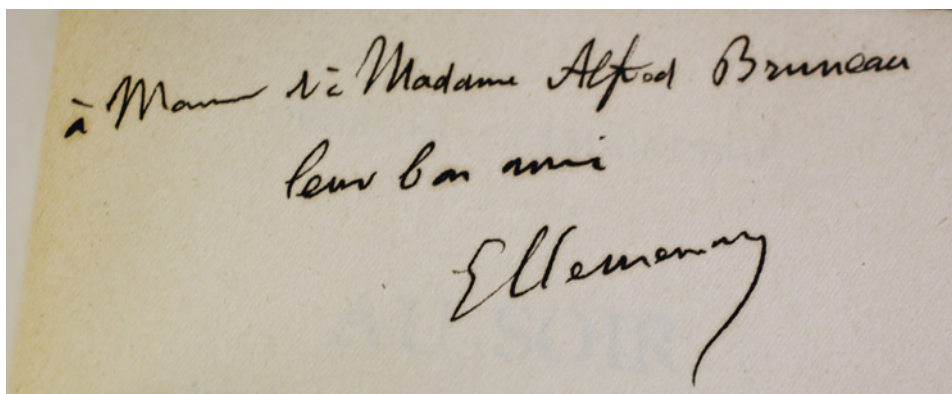 à Monsieur & à Madame Alfred Bruneau
leur bon ami
GClemenceau
AU SOIR